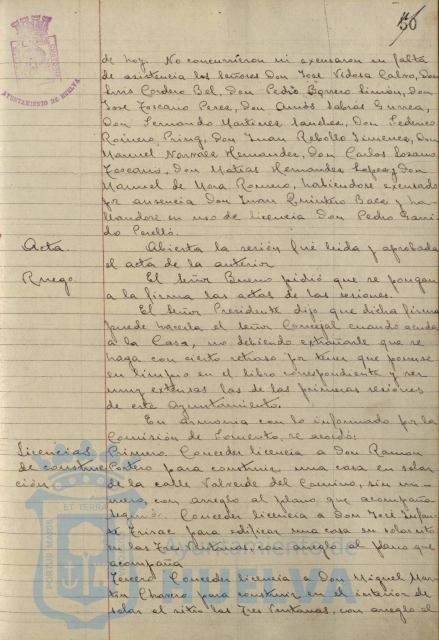 30
AYUNTAMIENTO DE HUELVA
de hoy. No concurrieron ni excusaron su falta
de asistencia los Señores Don José Vidosa Calvo, Don
Luis Cordero Bel, Don Pedro Borrero Limón, Don
José Toscano Perez, Don Amós Sabrás Gurrea,
Don Fernando Martinez Sanchez, Don Federico
Romero Pring, Don Juan Rebollo Jimenez, Don
Manuel Narvaez Hernandez, Don Carlos Lozano
Toscano, Don Matias Hernandez Lopez y Don
Manuel de Mora Romero, habiendose excusado
por ausencia Don Juan Quintero Baez y ha-
llandose en uso de licencia Don Pedro Garri-
do Perelló.
Acta. Abierta la sesión fué leida y aprobada
el acta de la anterior
Ruego. El Señor Bueno pidió que se pongan
a la firma las actas de las sesiones.
El Señor Presidente dijo que dicha firma
puede hacerla el señor Concejal cuando acuda
a la Casa, no debiendo extrañarle que se
haga con cierto retraso por tener que ponerse
en limpio en el libro correspondiente y ser
muy extensas las de las primeras sesiones
de este Ayuntamiento.
En armonia con lo informado por la
Comisión de Fomento, se acordó:
Licencias Primero. Conceder licencia a Don Ramon
de construc Portero para construir una casa en solar
ción. de la calle Valverde del Camino, sin nú-
mero, con arreglo al plano que acompaña
Segundo. Conceder licencia a Don José Infan-
te para edificar una casa en solar sito
en las Tres Ventanas, con arreglo al plano que
acompaña
Tercero. Conceder licencia a Don Miguel Mar-
tin Chavero para construir en el interior de
solar al sitio las Tres Ventanas, con arreglo al
ET TERRA
PORTUS MARIS
Ayuntamiento de
HUELVA